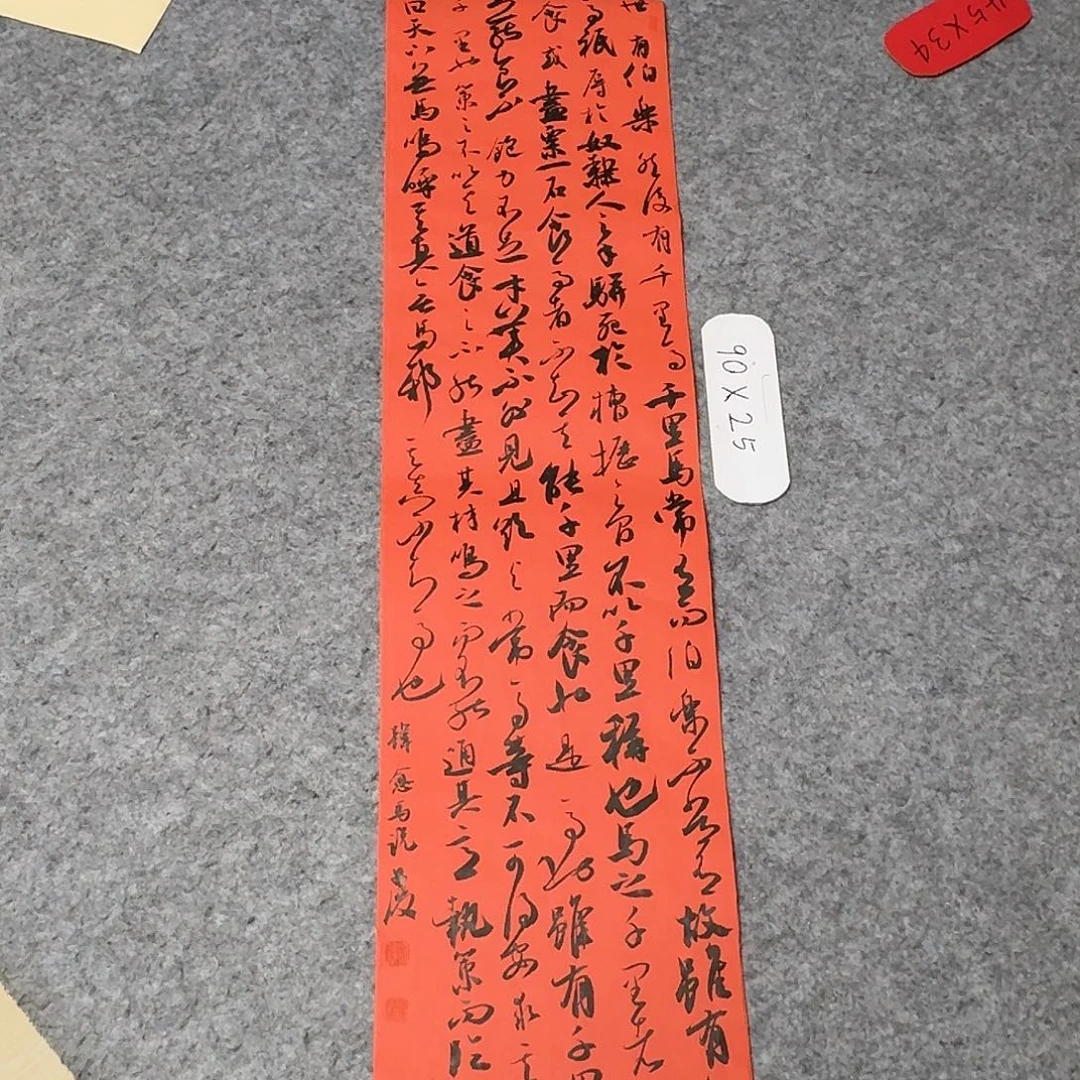 世有伯樂然後有千里馬千里馬常有而伯樂不常有故雖有
馬祇辱於奴隸人之手駢死於槽櫪之間不以千里稱也馬之千里者
食或盡粟一石食馬者不知其能千里而食如是馬也雖有千里
之能食不飽力不足才美不外見且欲與常馬等不可得安求其
千里也策之不以其道食之不能盡其材鳴之而不能通其意執策而臨
曰天下無馬嗚呼其真無馬邪其真不知馬也
韓愈馬說
90X25
45X34